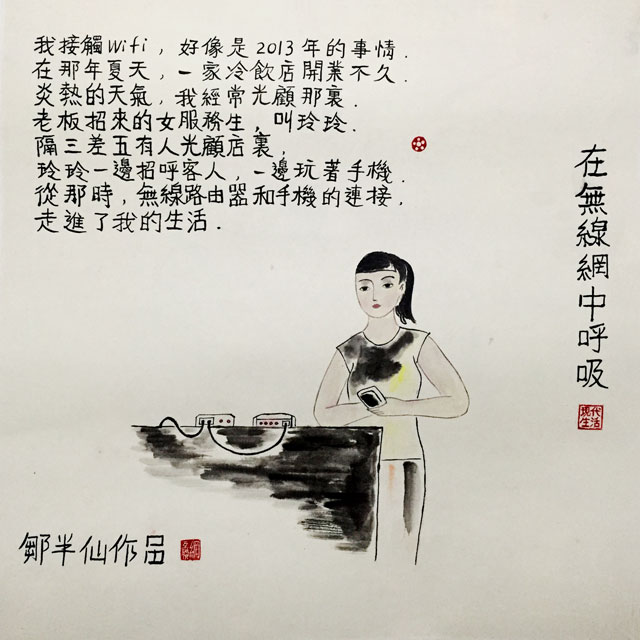 我接觸Wifi，好像是2013年的事情．
在那年夏天，一家冷飲店開業不久．
炎熱的天氣，我經常光顧那裏．
老板招來的女服務生，叫玲玲．
隔三差五有人光顧店裏，
玲玲一邊招呼客人，一邊玩著手機．
從那時，無線路由器和手機的連接，
走進了我的生活．
在無線網中呼吸
現代生活
鄒半仙作品